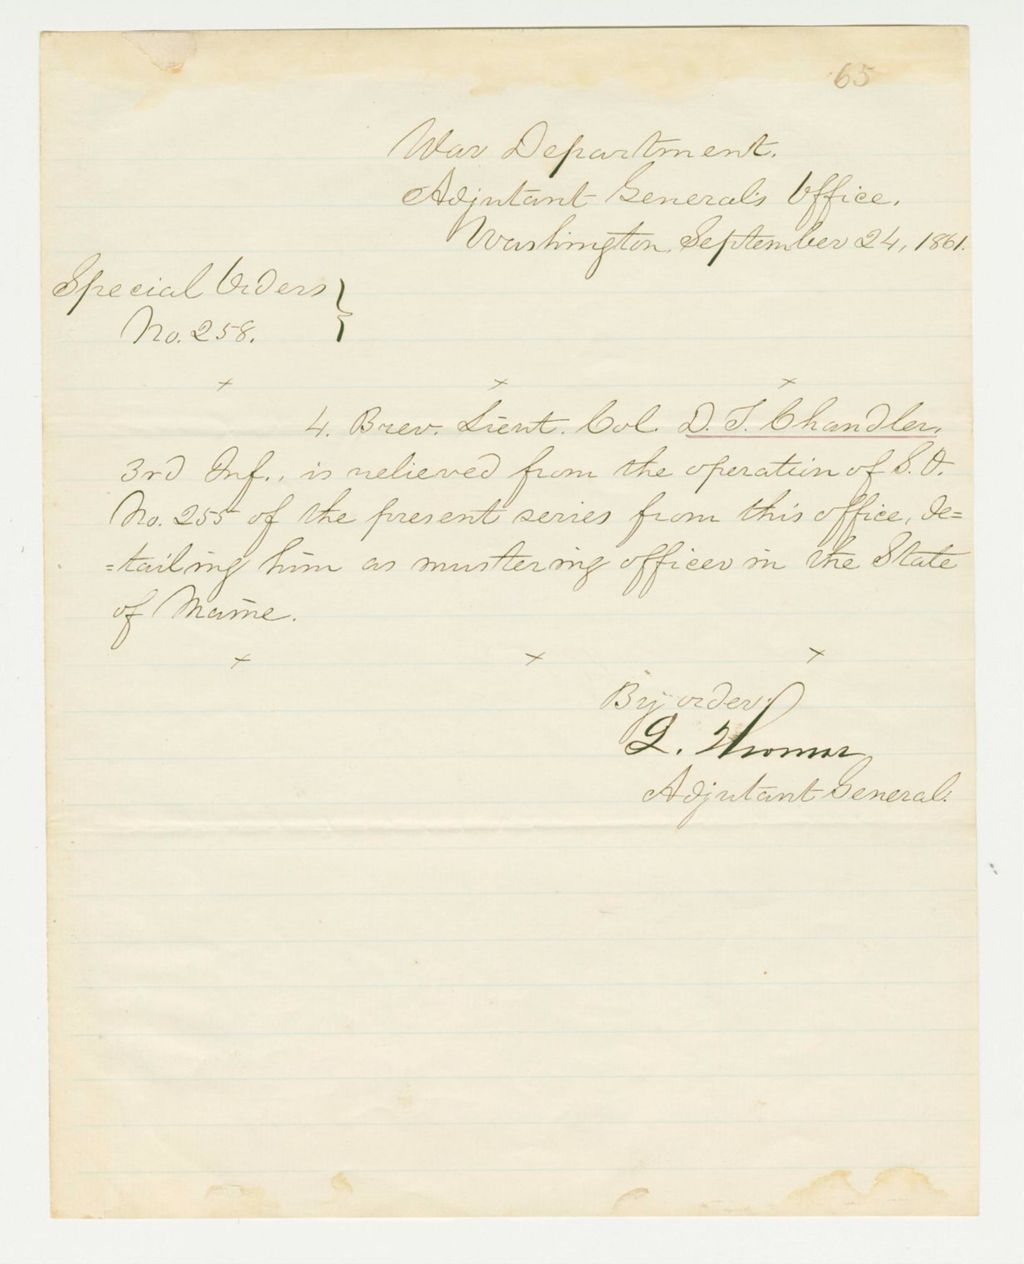 65
War Department.
Adjutant General's Office,
Washington, September 24, 1861.
Special Orders }
No. 258.
x x x
4. Brev. Lieut. Col. D. T. Chandler,
3rd Inf., is relieved from the operation of S. O.
No. 255 of the present series from this office, de=
=tailing him as mustering officer in the State
of Maine.
x x x
By order:
L. Thomas
Adjutant General.